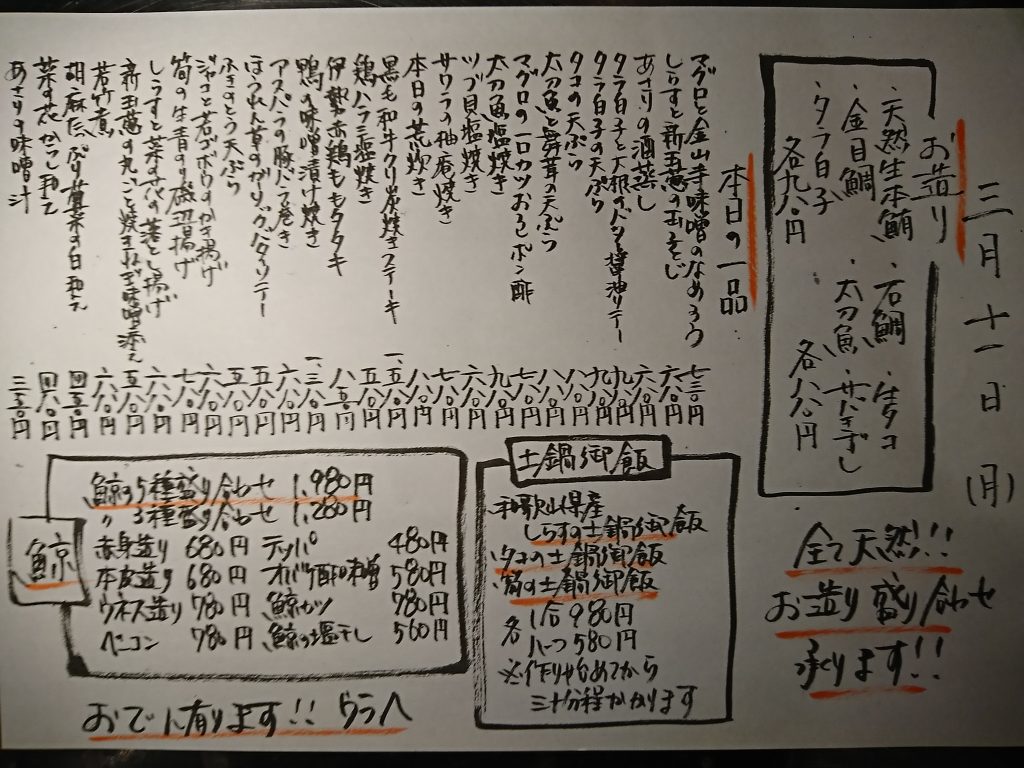 三月十一日（月）
お造り
・天然生本鮪
・石鯛
・生タコ
・金目鯛
・太刀魚
・サバきずし
・タラ白子
各九八〇円
各八八〇円
全て天然!!
お造り盛り合わせ
承ります!!
本日の一品
マグロと金山寺味噌のなめろう 七三〇円
しらすと新玉葱の玉子とじ 六八〇円
あさりの酒蒸し 六八〇円
タラ白子と大根のバタ醤油ソテー 九八〇円
タラ白子の天ぷら 九八〇円
タコの天ぷら 八八〇円
太刀魚と舞茸の天ぷら 八八〇円
マグロの一口カツおろしポン酢 七八〇円
太刀魚塩焼き 九八〇円
ツブ貝塩焼き 六八〇円
サワラの柚庵焼き 七八〇円
本日の荒炊き 八八〇円
黒毛和牛クリ炭焼きステーキ 一、五八〇円
鶏ハラミ塩焼き 五八〇円
伊勢赤鶏ももタタキ 八五〇円
鴨の味噌漬け焼き 一、三八〇円
アスパラの豚バラ巻き 六八〇円
ほうれん草のガーリックバターソテー 五八〇円
ふきのとう天ぷら 五八〇円
ジャコと若ゴボウのかき揚げ 六八〇円
筍の生青のり磯辺揚げ 七八〇円
しらすと菜の花の落とし揚げ 六八〇円
新玉葱の丸ごと焼きねぎ味噌添え 五八〇円
若竹煮 六八〇円
胡麻だっぷり葉菜の白和え 四五〇円
菜の花からし和え 四八〇円
あさりの味噌汁 三五〇円
土鍋御飯
和歌山県産
しらすの土鍋御飯
タコの土鍋御飯
筍の土鍋御飯
各 1合 980円
ハーフ 580円
※作りはじめてから
三十分程かかります
鯨
鯨の5種盛り合わせ 1,980円
〃 3種盛り合わせ 1,280円
赤身造り 680円 テッパ 480円
本皮造り 680円 オバケ酢味噌 580円
ウネス造り 780円 鯨カツ 780円
ベーコン 780円 鯨の塩干し 560円
おでん有ります!! うらへ